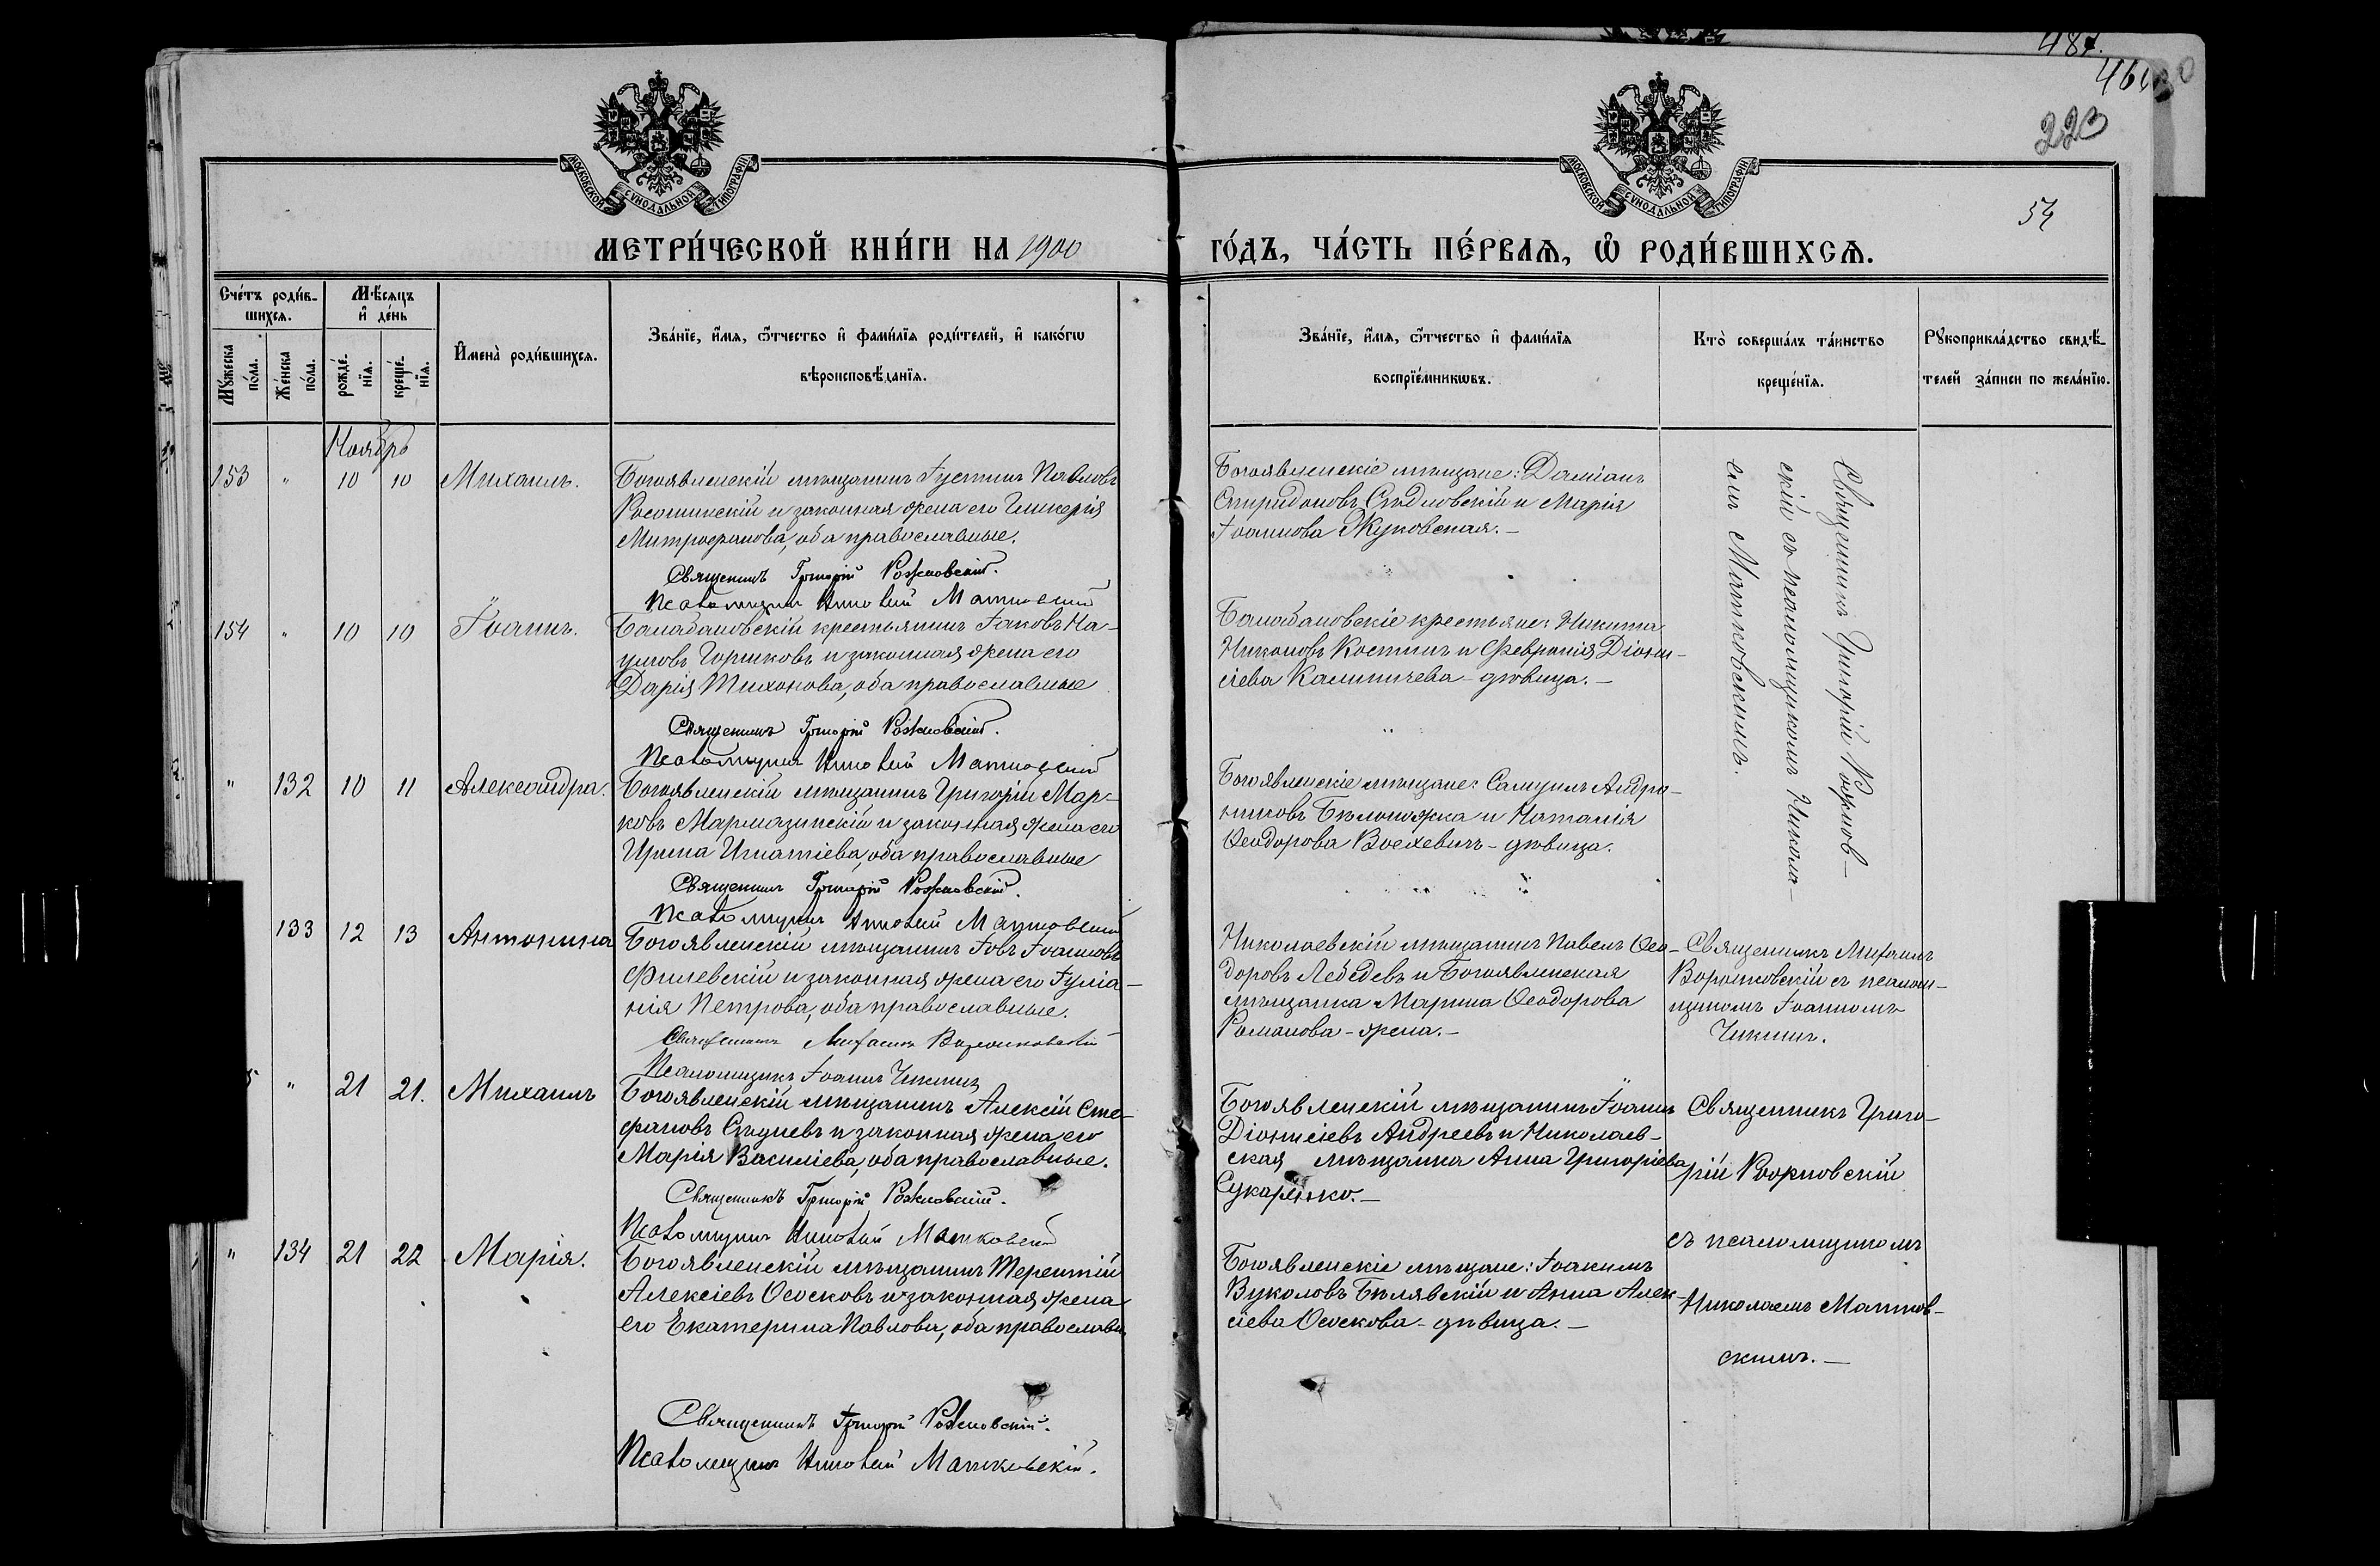 487.
223
54
МОСКОВСКОЙ СУНОДАЛЬНОЙ ТИПОГРАФІИ
МОСКОВСКОЙ СУНОДАЛЬНОЙ ТИПОГРАФІИ
МЕТРИ́ЧЕСКОЙ КНИ́ГИ НА 1900
ГО́ДЪ, ЧА́СТЬ ПЕ́РВАѦ, Ѡ РОДИ́ВШИХСѦ.
Сче́тъ роди́в-
шихсѧ.
Мѣ́сѧцъ
и де́нь
Мꙋ́жеска по́ла.
Же́нска по́ла.
рожде́-
нїѧ.
креще́-
нїѧ.
И҆мена̀ роди́вшихсѧ.
Зва́нїе, и҆́мѧ, ѻ҆́тчество и҆ фами́лїѧ роди́телей, и҆ како́гѡ
вѣроисповѣ́данїѧ.
Зва́нїе, и҆́мѧ, ѻ҆́тчество и҆ фами́лїѧ
воспрїе́мникѡвъ.
Кто̀ соверша́лъ та́инство
креще́нїѧ.
Рꙋкоприкла́дство свидѣ́-
телей за́писи по жела́нїю.
Ноябрь
153 " 10 10 Михаилъ.
Богоявленскій мѣщанинъ Іустинъ Павловъ
Росошинскій и законная жена его Гликерія
Митрофанова, оба православные.
Священникъ Григорій Рожновскій.
Псаломщикъ Николай Матковский
Богоявленскіе мѣщане: Даміанъ
Спиридоновъ Сѣдловскій и Марія
Іоаннова Жуковская. –
Священникъ Григорій Рожнов-
скій съ псаломщикомъ Никола-
емъ Матковскимъ.
154 " 10 10 Іоаннъ.
Балабановскій крестьянинъ Іаковъ На-
умовъ Горшковъ и законная жена его
Дарія Тихонова, оба православные
Священникъ Григорій Рожновскій.
Псаломщикъ Николай Матковский
Балабановскіе крестьяне: Никита
Никоновъ Костинъ и Февронія Діони-
сіева Калиничева - дѣвица. –
" 132 10 11 Александра.
Богоявленскій мѣщанинъ Григорій Мар-
ковъ Мармазинскій и законная жена его
Ирина Игнатіева, оба православные
Священникъ Григорій Рожновскій.
Псаломщикъ Николай Матковский
Богоявленскіе мѣщане: Самуилъ Андро-
никовъ Бѣлоножка и Наталія
Ѳеодорова Воехевичъ - дѣвица.
133 12 13 Антонина
Богоявленскій мѣщанинъ Іовъ Іоанновъ
Филевскій и законная жена его Іуліа-
нія Петрова, оба православные.
Священникъ Михаилъ Ворошковскій
Псаломщикъ Іоаннъ Чикинъ
Николаевскій мѣщанинъ Павелъ Ѳео-
доровъ Лебедевъ и Богоявленская
мѣщанка Марина Ѳеодорова
Романова - жена. –
Священникъ Михаилъ
Ворошковскій съ псалом-
щикомъ Іоанномъ
Чикинъ.
" 21 21. Михаилъ
Богоявленскій мѣщанинъ Алексій Сте-
фановъ Сѣдневъ и законная жена его
Марія Василіева, оба православные.
Священникъ Григорій Рожновскій.
Псаломщикъ Николай Матковский
Богоявленскій мѣщанинъ Іоаннъ
Діонисіевъ Андреевъ и Николаев-
ская мѣщанка Анна Григоріева
Сукаренко. –
Священникъ Григо-
рій Рожновскій
съ псаломщикомъ
Николаемъ Матков-
скимъ. –
" 134 21 22 Марія.
Богоявленскій мѣщанинъ Терентій
Алексіевъ Ососковъ и законная жена
его Екатерина Павлова, оба православн.
Священникъ Григорій Рожновскій.
Псаломщикъ Николай Матковскій.
Богоявленскіе мѣщане: Іоакимъ
Вуколовъ Бѣлявскій и Анна Алек-
сіева Ососкова - дѣвица. –